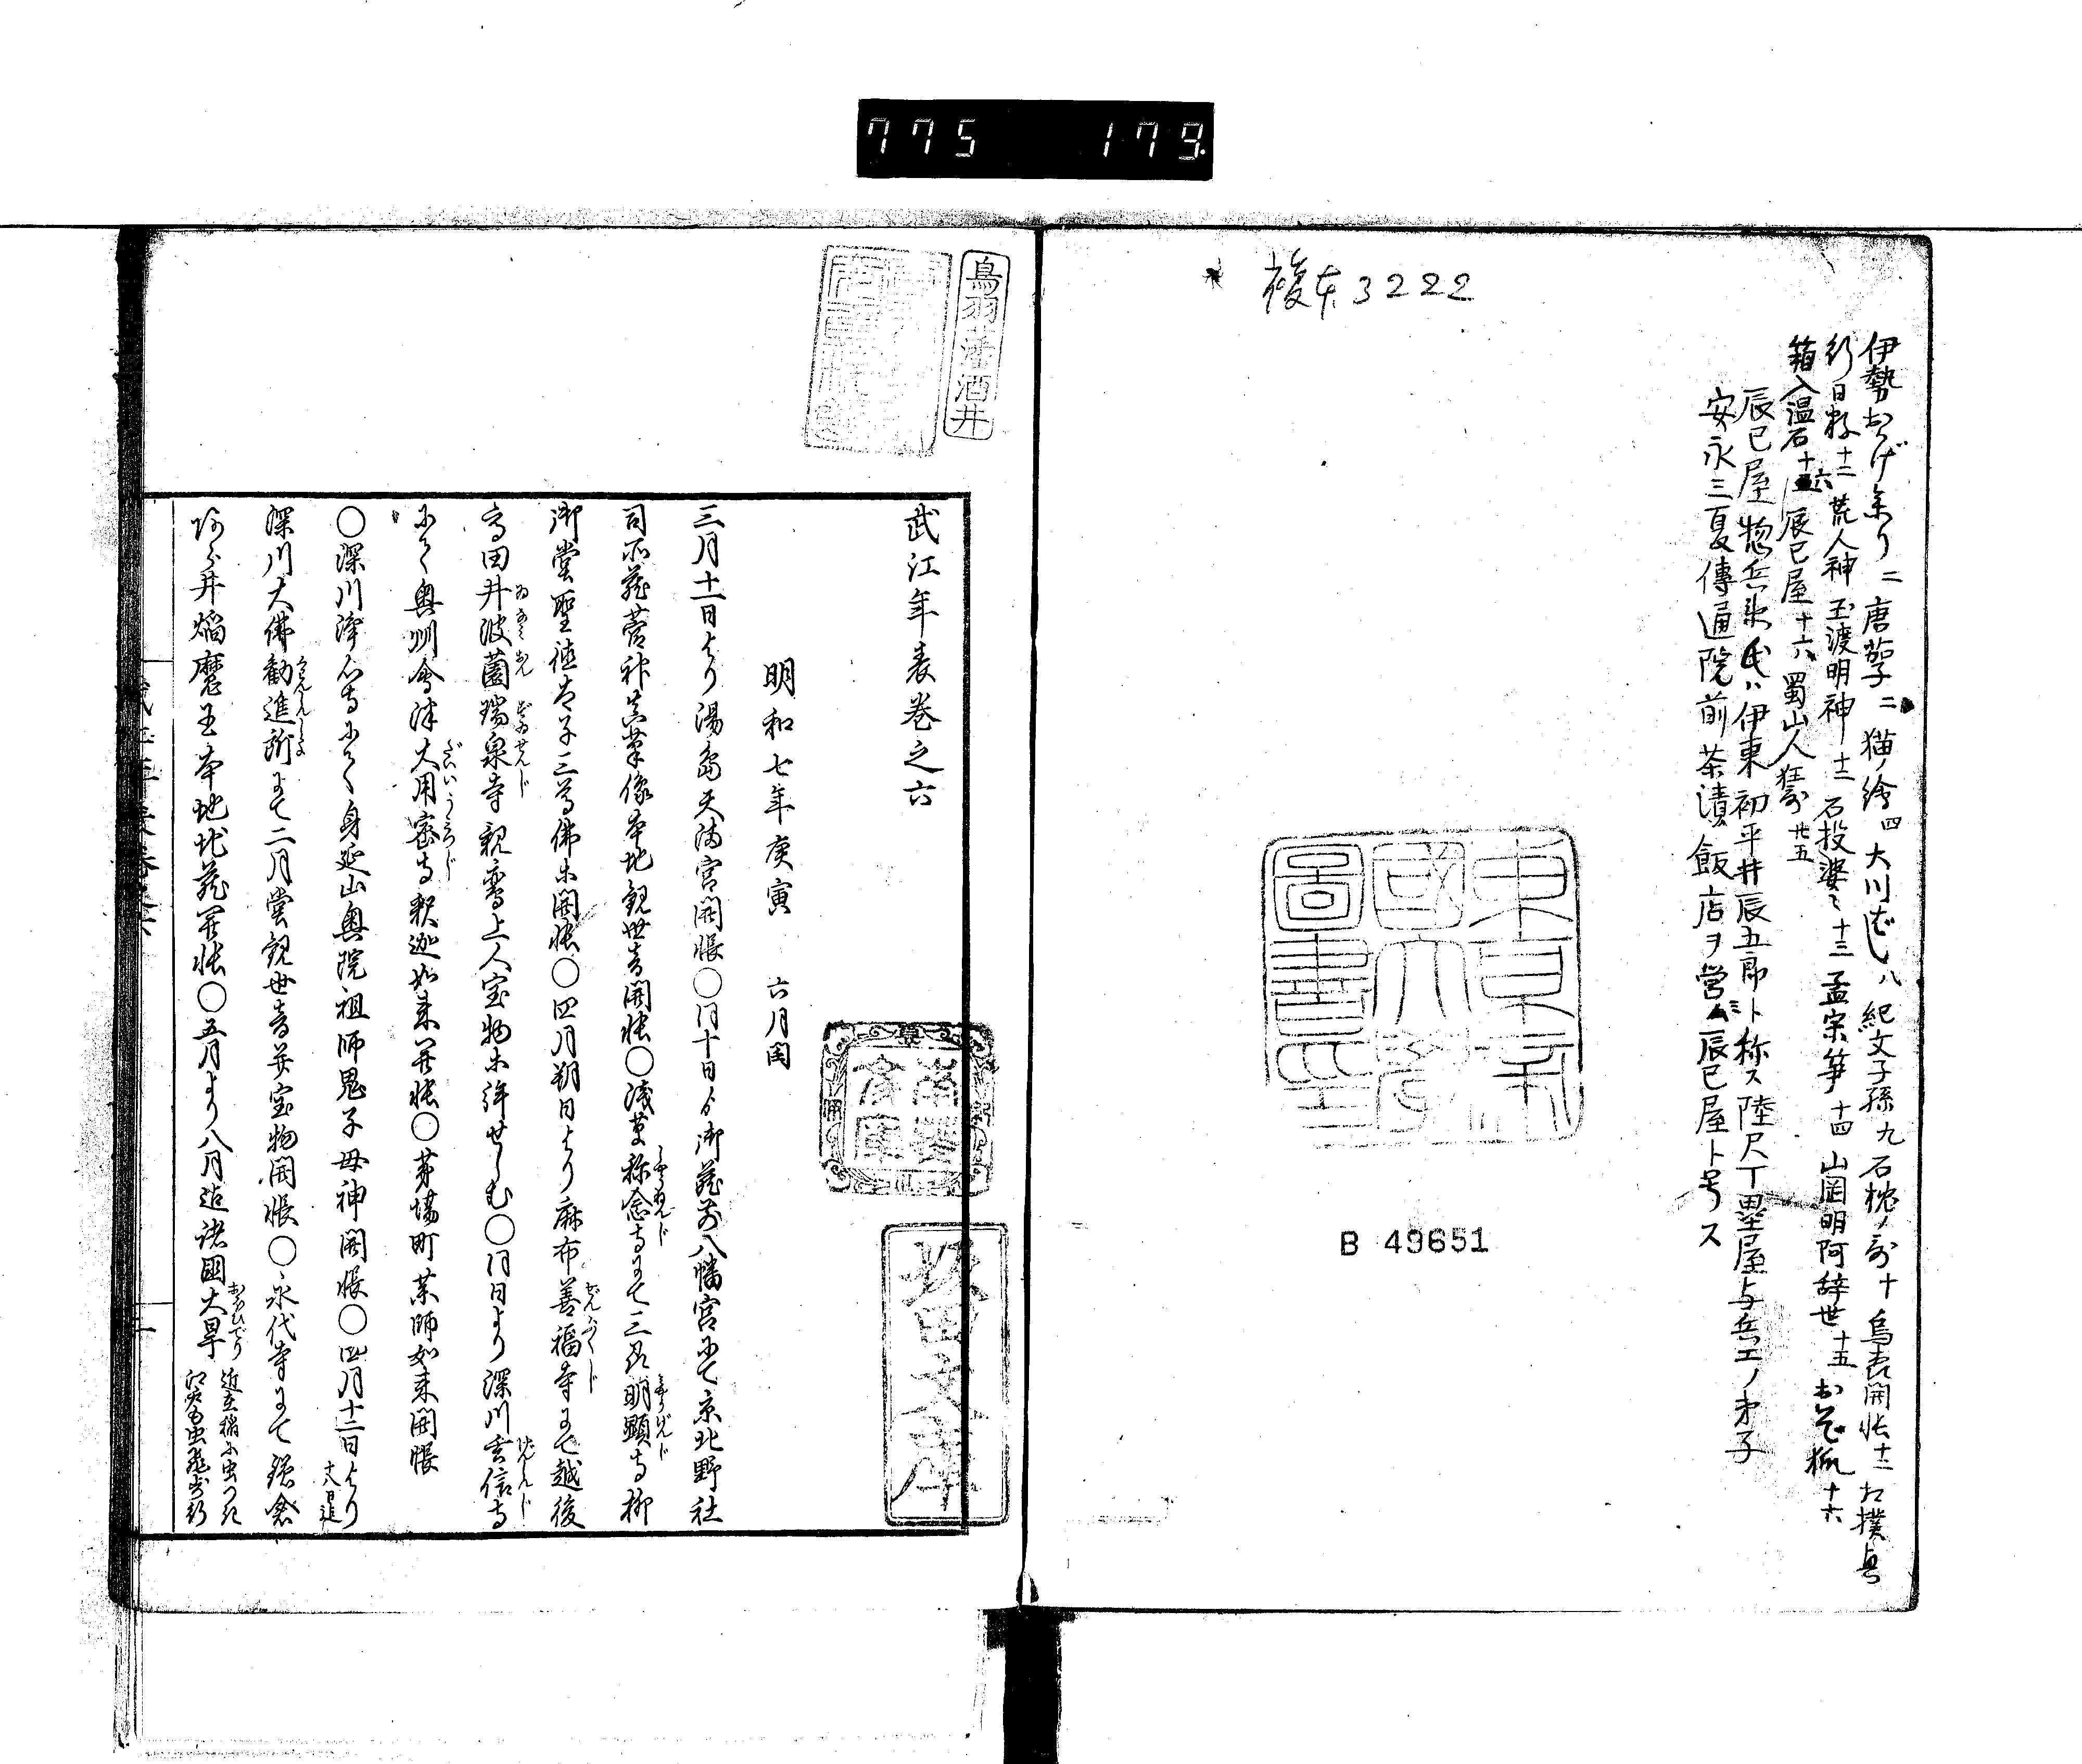 775 179
複本 3222
伊勢おかげ参り 二 唐茄子 二 猫ノ絵 四 大川ばし 八 紀文子孫 九 石枕ノ歌 十 鳥 開帳 十二 相撲
行日 十二 荒人神 玉渡明神 十三 石投婆々 十三 孟宗笋 十四 山岡明阿辞世 十五 狐 十六
箱入温石 十六 辰巳屋 十六 蜀山人 狂歌 廿五
辰巳屋惣兵衛氏ハ伊東初平井辰五郎ト称ス陸尺丁墨屋与兵エノ弟子
安永三夏傳通院前茶漬飯店ヲ営ム辰巳屋ト号ス
東京帝國大學圖書印
B 49651
鳥羽藩酒井
南葵文庫
武江年表巻之六
明和七年庚寅 六月閏
三月十一日より湯島天満宮開帳○同十日より御蔵前八幡宮にて京北野社
司所蔵菅神真筆像本地観世音開帳○浅草称念寺にて三州明顕寺柳
御堂聖徳太子三尊佛等開帳○四月朔日より麻布善福寺にて越後
高田井波園瑞泉寺親鸞上人宝物等拝せしむ○同日より深川玄信寺
にて奥州會津大用密寺釈迦如来開帳○茅場町薬師如来開帳
○深川浄心寺にて身延山奥院祖師鬼子母神開帳○四月十二日より 十八日迄
深川大佛勧進所にて二月堂観世音并宝物開帳○永代寺にて鎌倉
新井焔魔王本地地蔵開帳○五月より八月迄諸國大旱 近在稲に虫つき